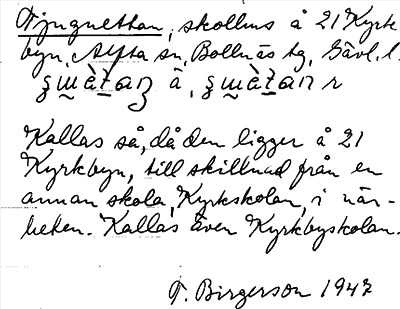 Tjuguettan, skollms å 21 Kyrk
byn, Alfta sn, Bollnäs tg, Gävl. l.
Kallas så, då den ligger å 21
Kyrkbyn, till skillnad från en
annan skola, Kyrkskolan, i när-
heten. Kallas även Kyrkbyskolan.
T. Birgerson 1947